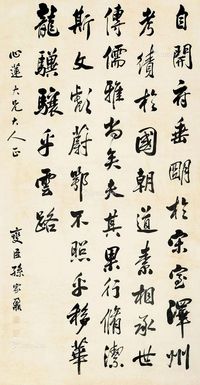 自開府垂朙於宋室澤州
考績於國朝道素相承世
傳儒雅尚矣夫其果行脩潔
斯文彪蔚鄂不照乎移華
龍驥驤乎雲路
心蓮大兄大人正
燮臣孫家鼐